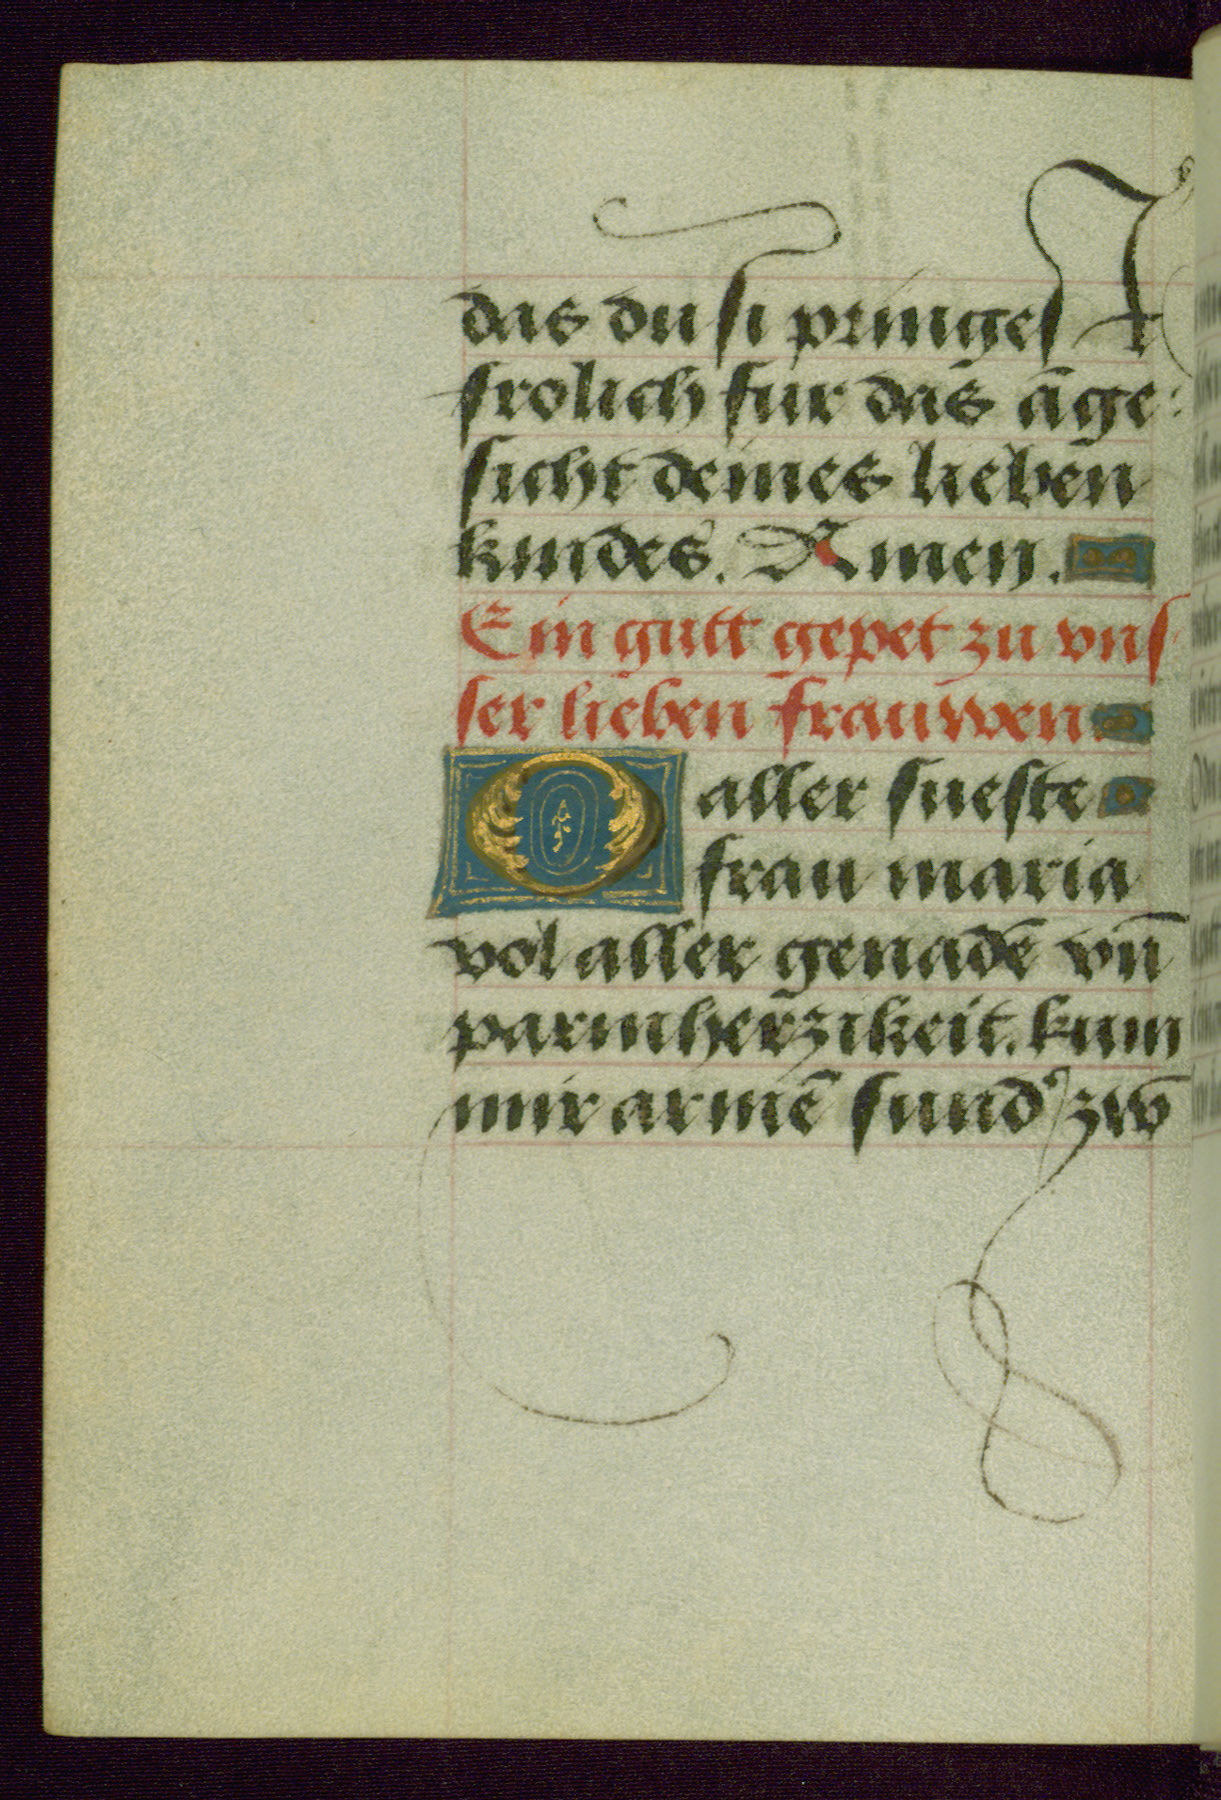 das du si pringeſt
frolich fur das āge⸗
ſicht deines lieben
kindes. Amen.
Ein gutt gepet zu vnſ⸗
ſer lieben frauwen
O aller ſueſte
frau maria
vol aller genadē vn̄
parmherzikeit. kum
mir armē ſund' zw̄